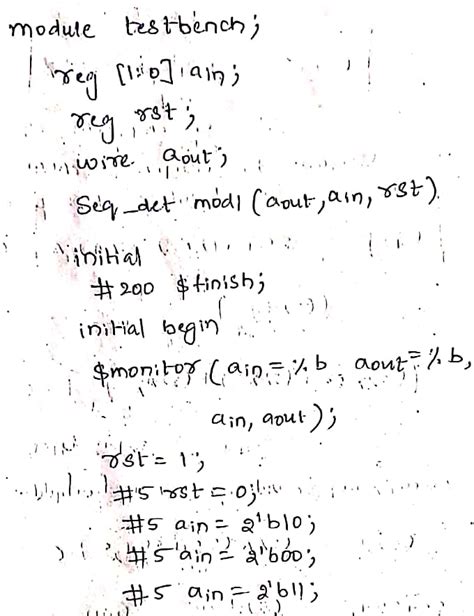 module testbench;
reg [1:0] ain;
reg rst;
wire aout;
Seq_det mod1 (aout, ain, rst)
initial
#200 $finish;
initial begin
$monitor (ain = %b aout = %b,
ain, aout);
rst = 1;
#5 rst = 0;
#5 ain = 2'b10;
#5 ain = 2'b00;
#5 ain = 2'b11;